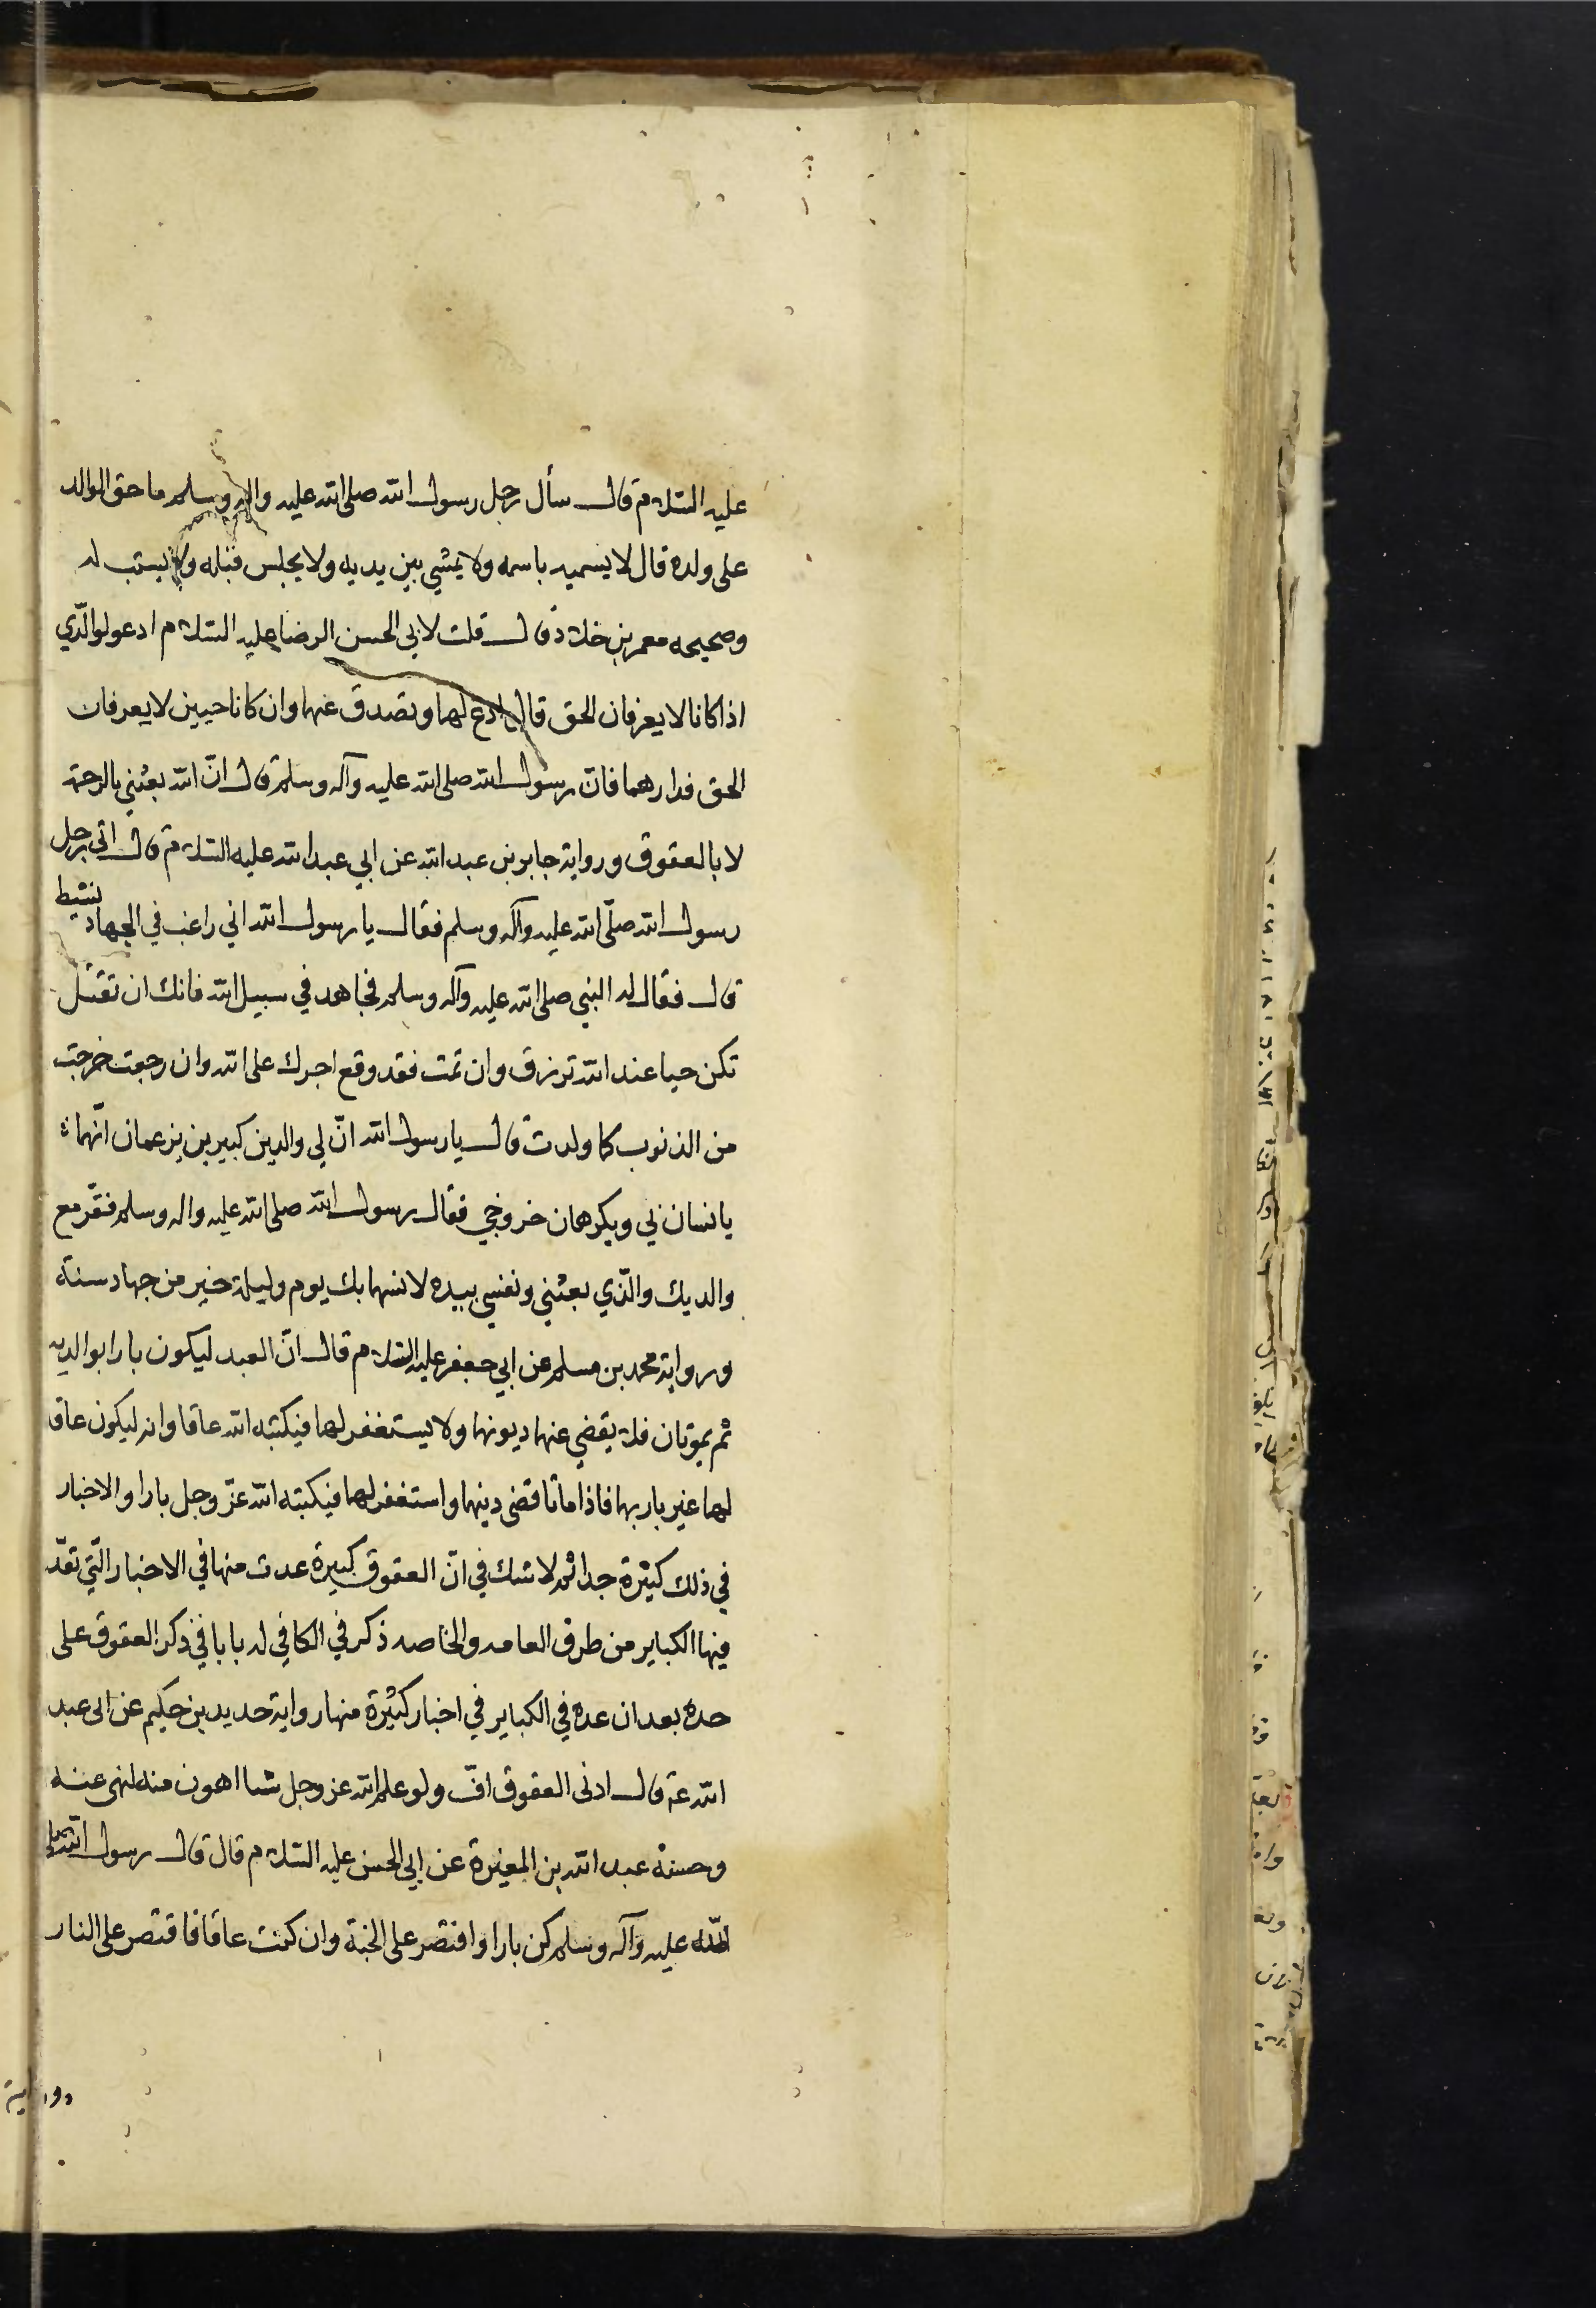 عليه السلام قال سأل رجل رسول الله صلى الله عليه واله وسلم ما حق الوالد
على ولده قال لا يسميه باسمه ولا يمشي بين يديه ولا يجلس قبله ولا يستب له
وصحيحه معمر بن خلاد قال قلت لابي الحسن الرضا عليه السلام ادعو لوالدّي
اذا كانا لا يعرفان الحق قال ادع لهما وتصدق عنهما وان كانا حيين لا يعرفان
الحق فدارهما فان رسول الله صلى الله عليه وآله وسلم قال انّ الله بعثني بالرحمة
لا بالعقوق ورواية جابر بن عبد الله عن ابي عبد الله عليه السلام قال اتى رجل
رسول الله صلّى الله عليه وآله وسلم فقال يا رسول الله اني راغب في الجهاد نشيط
قال فقال له النبي صلى الله عليه وآله وسلم فجاهد في سبيل الله فانك ان تقتل
تكن حيا عند الله ترزق وان تمت فقد وقع اجرك على الله وان رجعت خرجت
من الذنوب كما ولدت قال يا رسول الله انّ لي والدين كبيرين يزعمان انّهما
يانسان بي ويكرهان خروجي فقال رسول الله صلى الله عليه واله وسلم فقرّ مع
والديك والّذي بعثني ونفسي بيده لانسهما بك يوم وليلة خير من جهاد سنة
ورواية محمد بن مسلم عن ابي جعفر عليه السلام قال انّ العبد ليكون بارا بوالديه
ثم يموتان فلا يقضي عنهما ديونهما ولا يستغفر لهما فيكتبه الله عاقا وانه ليكون عاقا
لهما غير بار بهما فاذا ماتا قضى دينهما واستغفر لهما فيكتبه الله عزّ وجل بارا والاخبار
في ذلك كثيرة جدا ثم لا شك في انّ العقوق كبيرة عدت منها في الاخبار الّتي تعدّ
فيها الكباير من طرق العامه والخاصه ذكر في الكافي له بابا في ذكر العقوق على
حده بعد ان عده في الكباير في اخبار كثيرة منها رواية حديد بن حكيم عن ابى عبد
الله عة قال ادنى العقوق افّ ولو علم الله عز وجل شيا اهون منه لنهى عنه
وحسنة عبد الله بن المغيرة عن ابي الحسن عليه السلام قال قال رسول الله صلى
الله عليه وآله وسلم كن بارا واقتصر على الجنة وان كنت عاقا فاقتصر على النار
ورواية